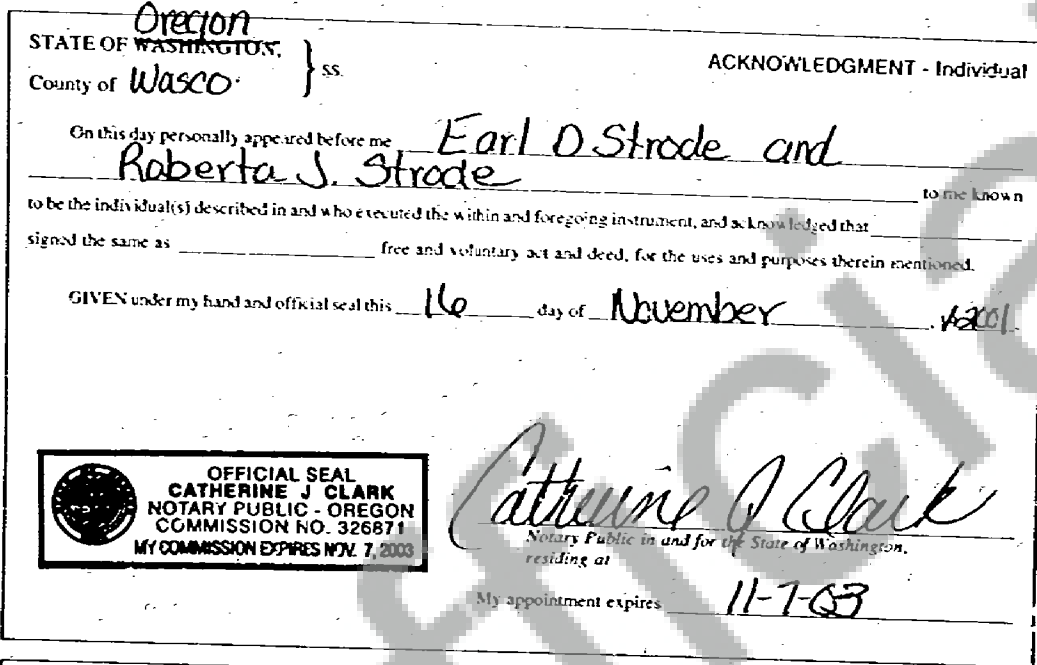 Oregon
STATE OF WASHINGTON, } ss.
ACKNOWLEDGMENT - Individual
County of Wasco.
On this day personally appeared before me Earl D Strode and
Roberta J. Strode to me known
to be the individual(s) described in and who executed the within and foregoing instrument, and acknowledged that
signed the same as free and voluntary act and deed, for the uses and purposes therein mentioned.
GIVEN under my hand and official seal this 16 day of November , 2001.
OFFICIAL SEAL
CATHERINE J CLARK
NOTARY PUBLIC - OREGON
COMMISSION NO. 326871
MY COMMISSION EXPIRES NOV. 7, 2003
Catherine J Clark
Notary Public in and for the State of Washington,
residing at
My appointment expires 11-7-03